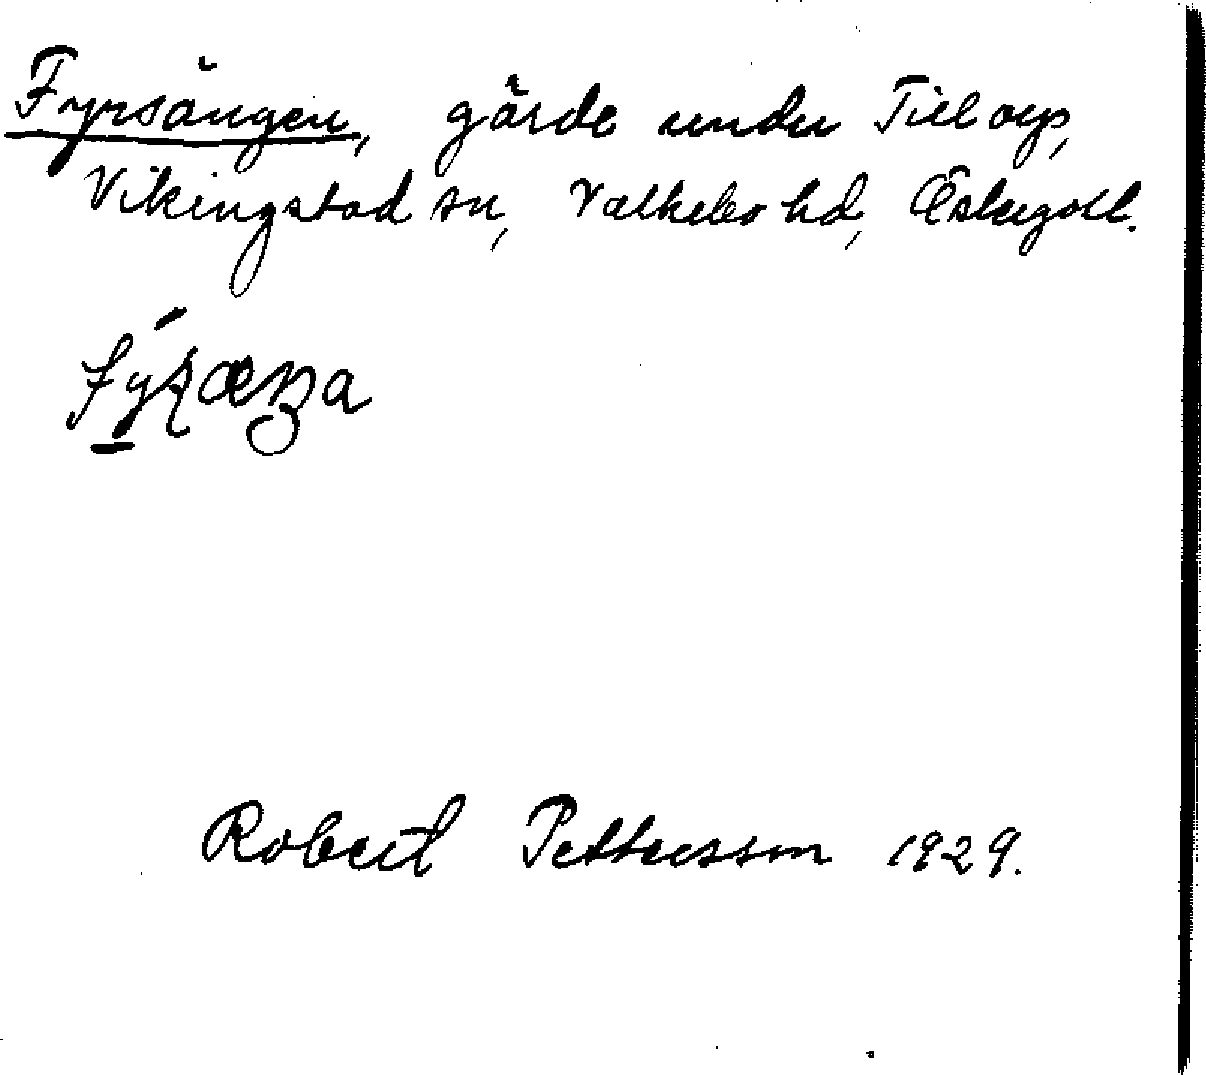 Fyrsängen, gärde under Tillorp,
Vikingstad sn, Valkebo hd, Östergötl.
Robert Pettersson 1929.